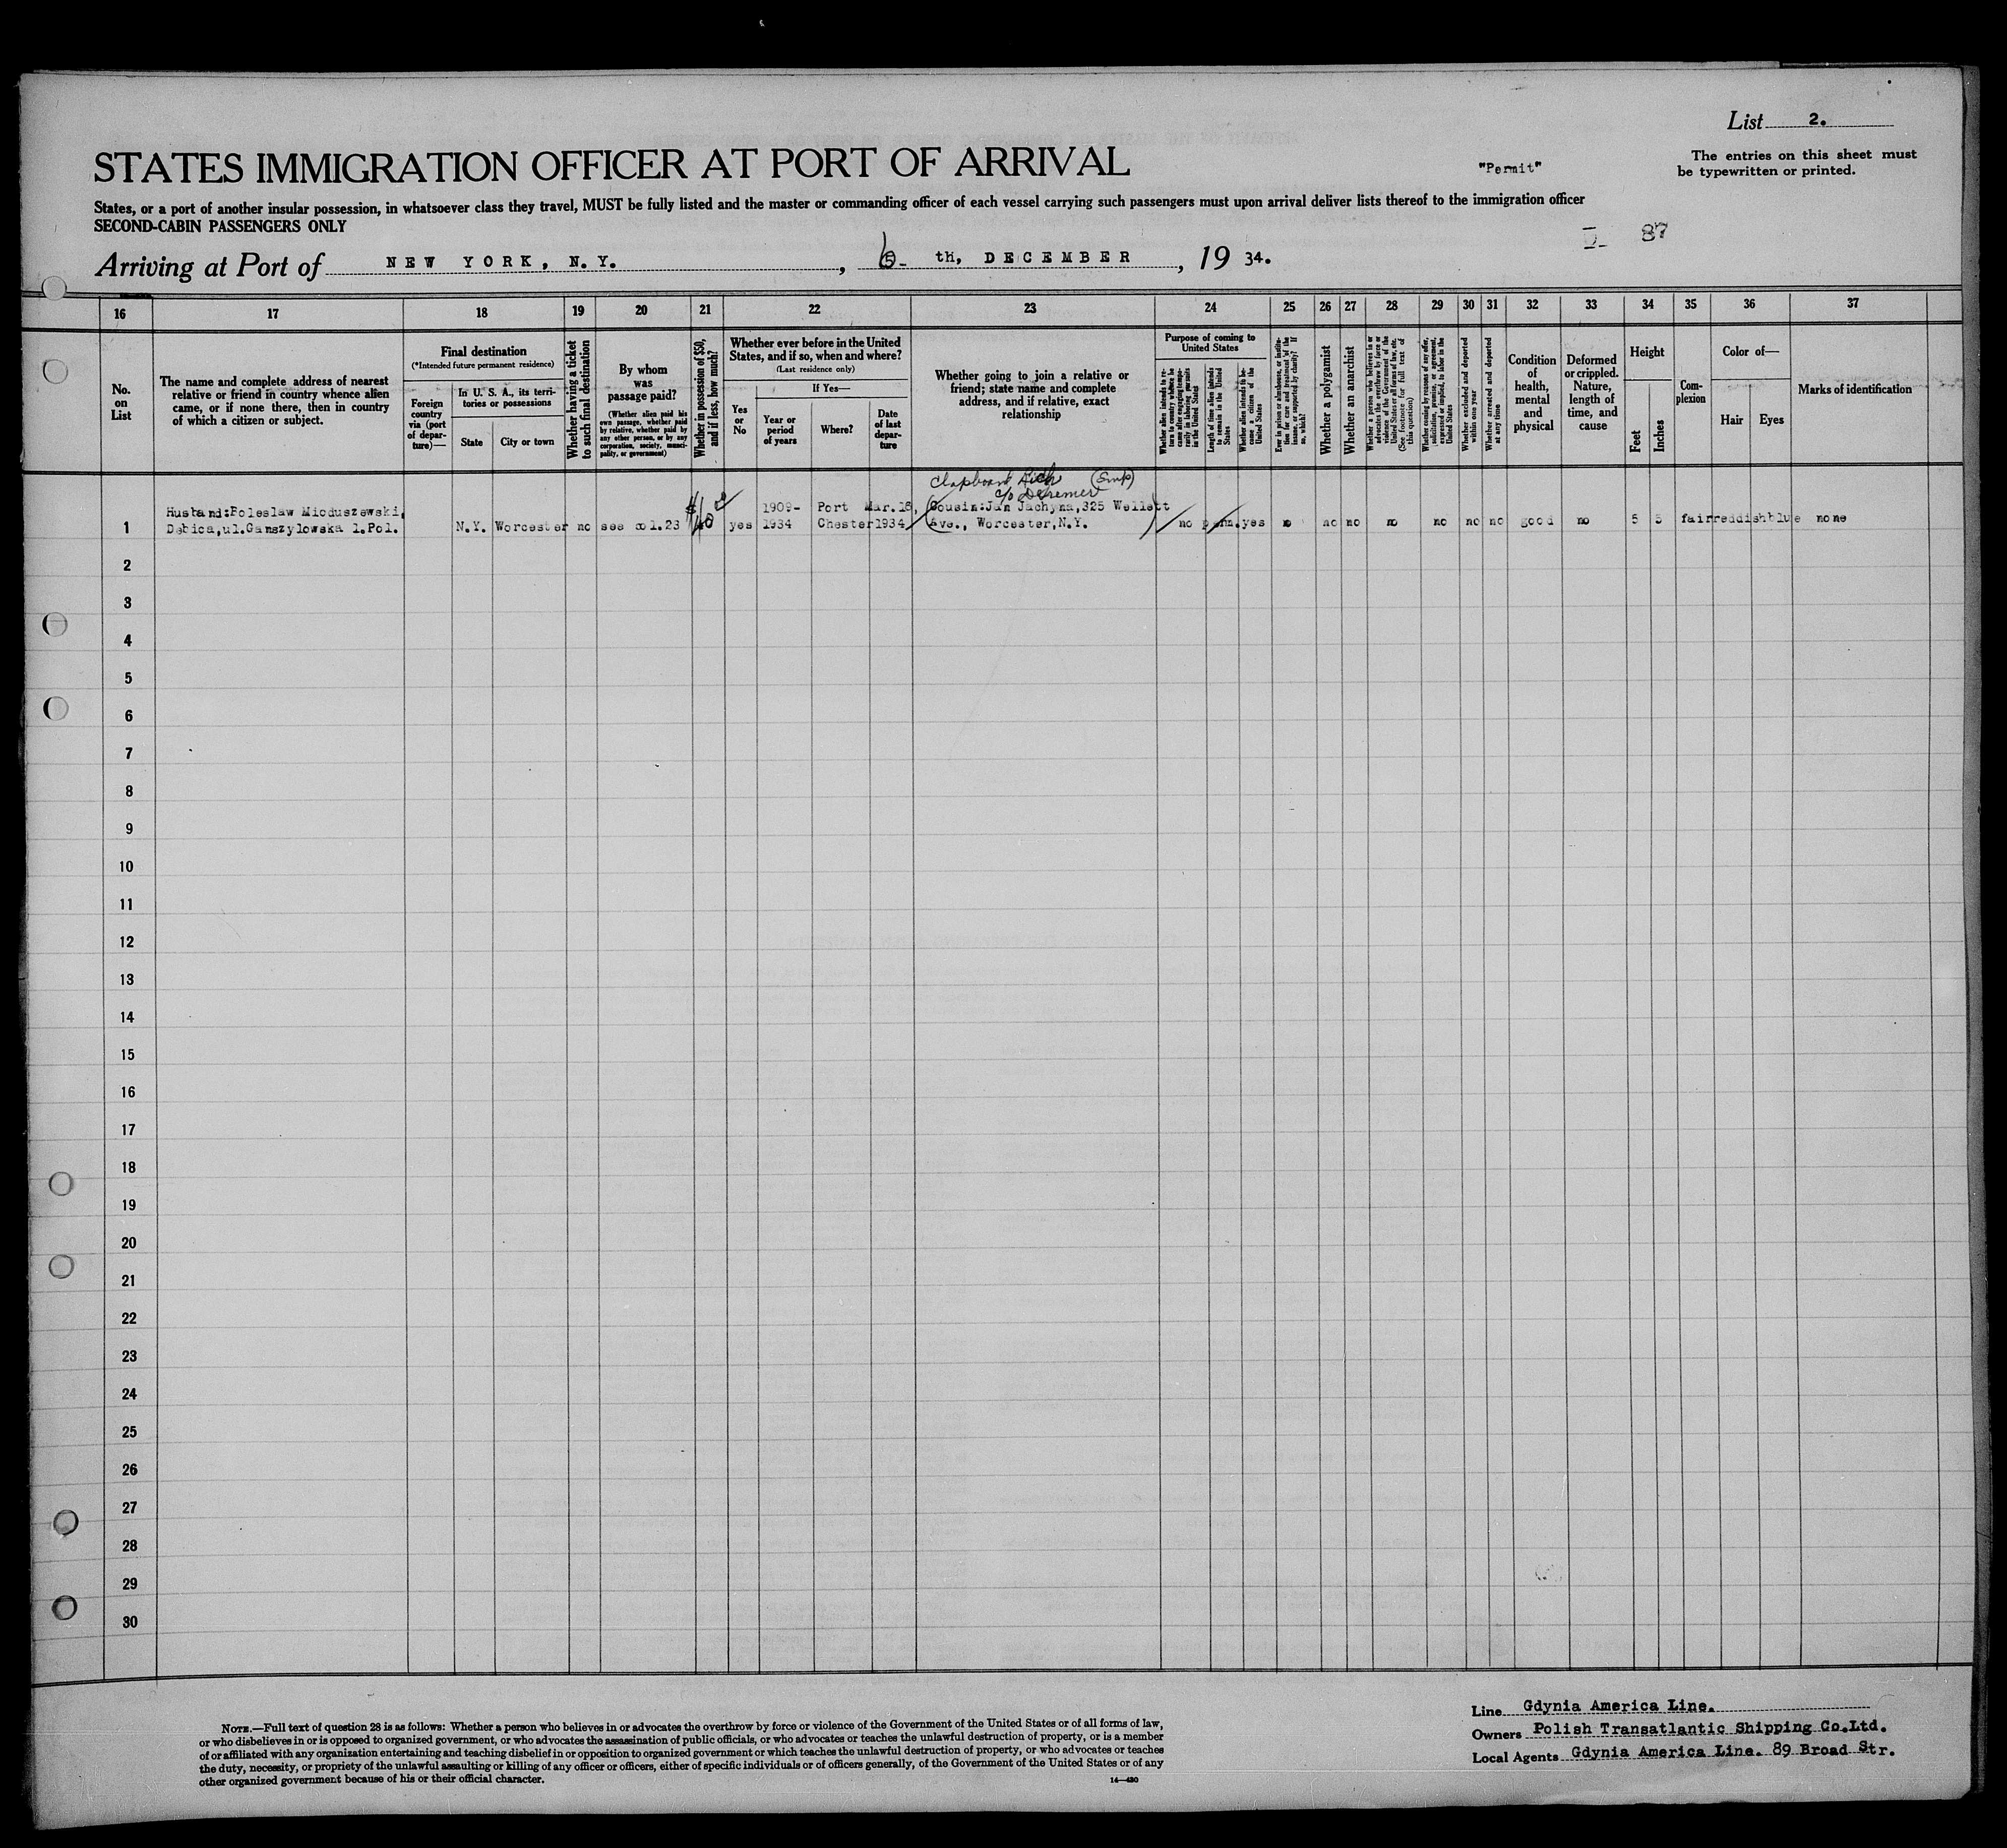 List 2.
STATES IMMIGRATION OFFICER AT PORT OF ARRIVAL
"Permit"
The entries on this sheet must
be typewritten or printed.
States, or a port of another insular possession, in whatsoever class they travel, MUST be fully listed and the master or commanding officer of each vessel carrying such passengers must upon arrival deliver lists thereof to the immigration officer
SECOND-CABIN PASSENGERS ONLY
87
Arriving at Port of NEW YORK, N.Y. , th, DECEMBER , 19 34.
16 17 18 19 20 21 22 23 24 25 26 27 28 29 30 31 32 33 34 35 36 37
No.
on
List
The name and complete address of nearest
relative or friend in country whence alien
came, or if none there, then in country
of which a citizen or subject.
Final destination
(*Intended future permanent residence)
Foreign
country
via (port
of depar-
ture)—
In U. S. A., its terri-
tories or possessions
State
City or town
Whether having a ticket
to such final destination
By whom
was
passage paid?
(Whether alien paid his
own passage, whether paid
by relative, whether paid by
any other person, or by any
corporation, society, munici-
pality, or government)
Whether in possession of $50,
and if less, how much?
Whether ever before in the United
States, and if so, when and where?
(Last residence only)
Yes
or
No
If Yes—
Year or
period
of years
Where?
Date
of last
depar-
ture
Whether going to join a relative or
friend; state name and complete
address, and if relative, exact
relationship
Purpose of coming to
United States
Whether alien intends to re-
turn to country whence he
came after engaging tempo-
rarily in laboring pursuits
in the United States
Length of time alien intends
to remain in the United
States
Whether alien intends to be-
come a citizen of the
United States
Ever in prison or almshouse, or institu-
tion for care and treatment of the
insane, or supported by charity? If
so, which?
Whether a polygamist
Whether an anarchist
Whether a person who believes in or
advocates the overthrow by force or
violence of the Government of the
United States or all forms of law, etc.
(See footnote for full text of
this question)
Whether coming by reasons of any offer,
solicitation, promise, or agreement,
expressed or implied, to labor in the
United States
Whether excluded and deported
within one year
Whether arrested and deported
at any time
Condition
of
health,
mental
and
physical
Deformed
or crippled.
Nature,
length of
time, and
cause
Height
Feet
Inches
Com-
plexion
Color of—
Hair
Eyes
Marks of identification
Clapboard
c/o
Husband:Boleslaw Mioduszewski, $40 1909- Port Mar.18, Cousin:Jan Jachyna,325 Wellett
1 Debica,ul.Ganszylowska 1.Pol. N.Y. Worcester no see col.23 yes 1934 Chester 1934 Ave., Worcester,N.Y. no perm. yes no no no no no no no good no 5 5 fair reddish blue none
2
3
4
5
6
7
8
9
10
11
12
13
14
15
16
17
18
19
20
21
22
23
24
25
26
27
28
29
30
NOTE.—Full text of question 28 is as follows: Whether a person who believes in or advocates the overthrow by force or violence of the Government of the United States or of all forms of law,
or who disbelieves in or is opposed to organized government, or who advocates the assassination of public officials, or who advocates or teaches the unlawful destruction of property, or is a member
of or affiliated with any organization entertaining and teaching disbelief in or opposition to organized government or which teaches the unlawful destruction of property, or who advocates or teaches
the duty, necessity, or propriety of the unlawful assaulting or killing of any officer or officers, either of specific individuals or of officers generally, of the Government of the United States or of any
other organized government because of his or their official character.
14—430
Line Gdynia America Line.
Owners Polish Transatlantic Shipping Co.Ltd.
Local Agents Gdynia America Line. 89 Broad Str.